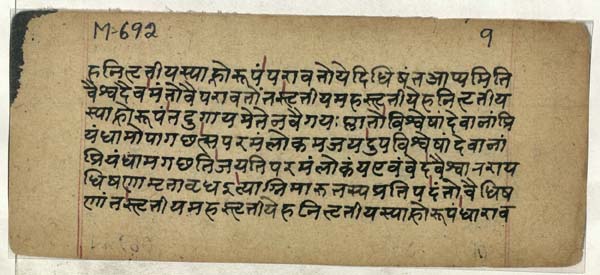 M-692
१
हनितृतीयस्याह्नोरूपंपरावतोयेदिधिषंतआप्यमिति
वैश्वदेवमंतोवैपरावतोंतस्तृतीयमहस्तृतीयेहनितृतीय
स्याह्नोरूपंतदुगायमेतेनवैगयः प्लातोविश्वेषांदेवानांप्रि
यंधामोपागछत्सपरमंलोकमजयदुपविश्वेषांदेवानां
प्रियंधामगछतिजयतिपरमंलोकंयएवंवेदवैश्वानराय
धिषणामृतावृधइत्याग्निमारुतस्यप्रतिपदंतोवैधिष
णांतस्तृतीयमहस्तृतीयेहनितृतीयस्याह्नोरूपंधाराव